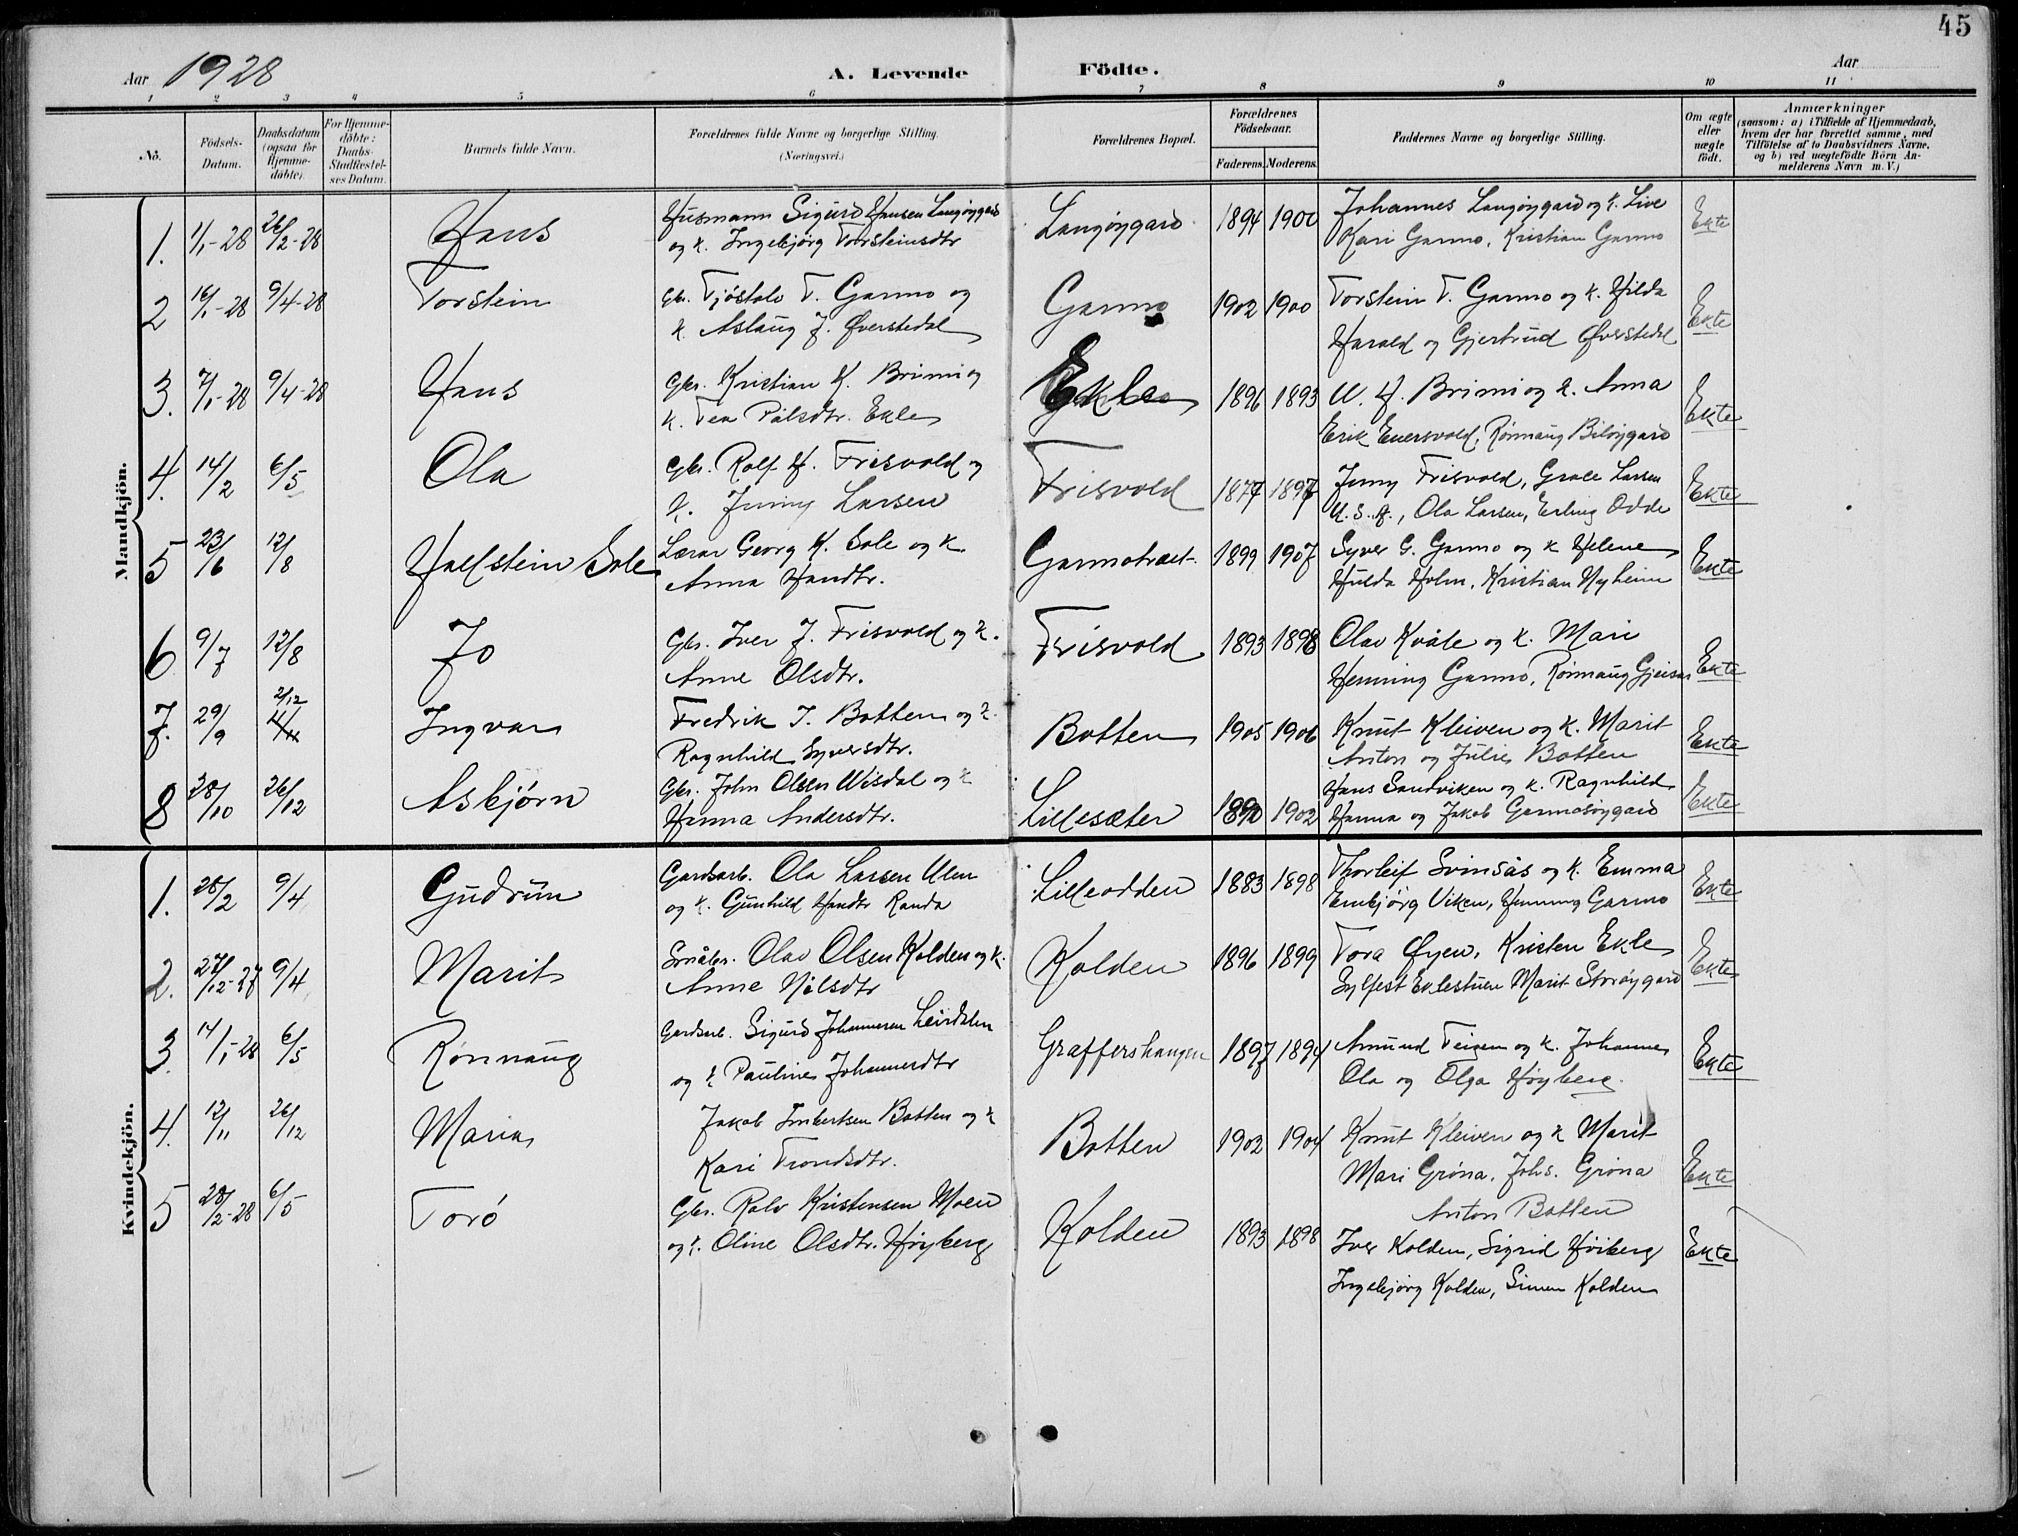 45
Aar 1928 A. Levende Födte. Aar
1 2 3 4 5 6 7 8 9 10 11
No. Födsels-Datum. Daabsdatum (ogsaa for Hjemmedöbte). For Hjemmedöbte: Daabs-Stadfestelses Datum. Barnets fulde Navn. Forældrenes fulde Navne og borgerlige Stilling. (Næringsvei.) Forældrenes Bopæl. Forældrenes Födselsaar. Faderens. Moderens. Faddernes Navne og borgerlige Stilling. Om ægte eller uægte födt. Anmærkninger (saasom: a) i Tilfælde af Hjemmedaab, hvem der har forrettet samme, med Tilföielse af to Daabsvidners Navne, og b) ved uægtefödte Börn Anmelderens Navn m. V.)
Mandkjön.
1. 1/1-28 26/2-28 Hans Husmann Sigurd Hansen Langøygard Langøygard 1894 1900 Johannes Langøygard og k. Live Ekte
og k. Ingebjørg Torsteinsdtr Kari Garmo, Kristian Garmo
2 16/1-28 9/4-28 Torstein Gbr. Tjøstolv T. Garmo og Garmo 1902 1900 Torstein T. Garmo og k. Hilda Ekte
k. Aslaug J. Øverstedal Harald og Gjertrud Øverstedal
3. 7/1-28 9/4-28 Hans Gbr. Kristian K. Brimi og Ekle 1896 1893 H. Brimi og k. Anna Ekte
k. Tea Pålsdtr. Ekle Erik Enersvold, Rønnaug Biløygard
4. 14/2 6/5 Ola Gbr. Rolf H. Frisvold og Frisvold Jenny Frisvold, Larsen Ekte
k. Jenny Larsen Ola Larsen, Erling Odde
5 23/6 12/8 Halfstein Sole Lærar Georg K. Sole og k. Garmotræet 1899 1907 Syver G. Garmo og k Helene Ekte
Anna Handtr. Hulda Holm, Kristian Nyheim
6 9/7 12/8 Jo Gbr. Iver J. Frisvold og k. Frisvold 1893 1898 Olav Kvåle og k. Mari
Anne Olsdtr. Henning Garmo, Rønnaug Ekte
7. 29/9 4/11 2/12 Ingvar Fredrik I. Botten og k. Botten 1905 1906 Knut Kleiven og k. Marit Ekte
Ragnhild Syversdtr. Anton og Julie Botten
8 28/10 26/12 Asbjørn Gbr. John Olsen Visdal og k Lillesæter 1890 1902 Hans Sandviken og k. Ragnhild Ekte
Hanna Andersdtr. Hanna og Jakob Garmosøygard
Kvindekjön.
1. 28/2 9/4 Gudrun Gardsarb. Ola Larsen Ulen Lilleodden 1883 1898 Thorleif Svinsås og k. Emma Ekte
og k. Gunhild Handtr Randa Embjørg Viken, Henning Garmo
2. 27/12-27 9/4 Marit Småbr. Olav Olsen Kolden og k. Kolden 1896 1899 Tora Øyen, Kristen Ekle Ekte
Anne Nilsdtr Sylfest Eklestuen Marit Storøygard
3. 14/1-28 6/5 Rønnaug Gardsarb. Sigurd Johannesen Leirdalen Graffershaugen 1897 1894 Amund Teigen og k. Johanne Ekte
og k Pauline Johannesdtr Ola og Olga Høyberg.
4. 12/11 26/12 Maria Jakob Imbertsen Botten og k Botten 1902 1904 Knut Kleiven og k Marit
Kari Trondsdtr. Mari Grøna, Johs. Grøna Ekte
Anton Botten
5 28/2-28 6/5 Toró Gbr. Rolv Kristensen Moen Kolden 1893 1898 Iver Kolden, Sigrid Høiberg Ekte
og k. Oline Olsdtr. Høyberg Ingebjørg Kolden, Simen Kolden